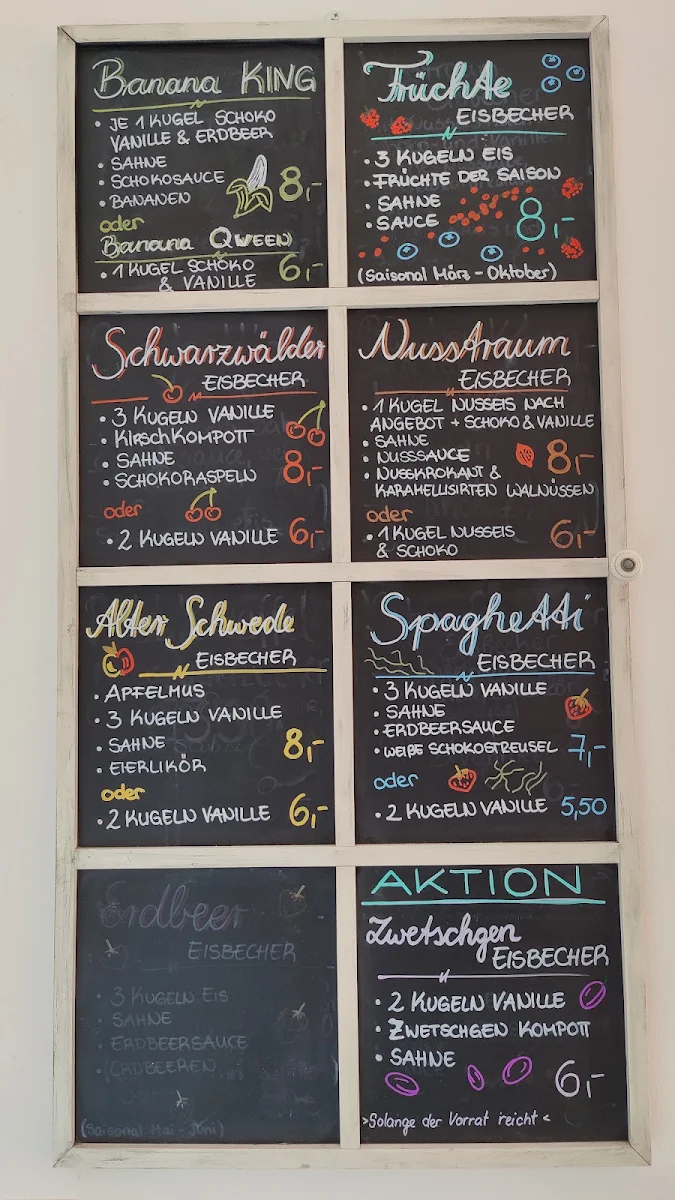 Banana KING
• JE 1 KUGEL SCHOKO
VANILLE & ERDBEER
• SAHNE
• SCHOKOSAUCE
• BANANEN
8,-
oder
Banana QWEEN
• 1 KUGEL SCHOKO
& VANILLE
6,-
Früchte
EISBECHER
• 3 KUGELN EIS
• FRÜCHTE DER SAISON
• SAHNE
• SAUCE
8,-
(Saisonal März - Oktober)
Schwarzwälder
EISBECHER
• 3 KUGELN VANILLE
• KIRSCHKOMPOTT
• SAHNE
• SCHOKORASPELN
8,-
oder
• 2 KUGELN VANILLE 6,-
Nusstraum
EISBECHER
• 1 KUGEL NUSSEIS NACH
ANGEBOT + SCHOKO & VANILLE
• SAHNE
• NUSSSAUCE
8,-
• NUSSKROKANT &
KARAMELLISIRTEN WALNÜSSEN
oder
• 1 KUGEL NUSSEIS
& SCHOKO
6,-
Alter Schwede
EISBECHER
• APFELMUS
• 3 KUGELN VANILLE
• SAHNE
• EIERLIKÖR
8,-
oder
• 2 KUGELN VANILLE 6,-
Spaghetti
EISBECHER
• 3 KUGELN VANILLE
• SAHNE
• ERDBEERSAUCE
• WEIßE SCHOKOSTREUSEL 7,-
oder
• 2 KUGELN VANILLE 5,50
Erdbeer
EISBECHER
• 3 KUGELN EIS
• SAHNE
• ERDBEERSAUCE
• ERDBEEREN
(Saisonal Mai - Juni)
AKTION
Zwetschgen
EISBECHER
• 2 KUGELN VANILLE
• ZWETSCHGEN KOMPOTT
• SAHNE
6,-
>Solange der Vorrat reicht<